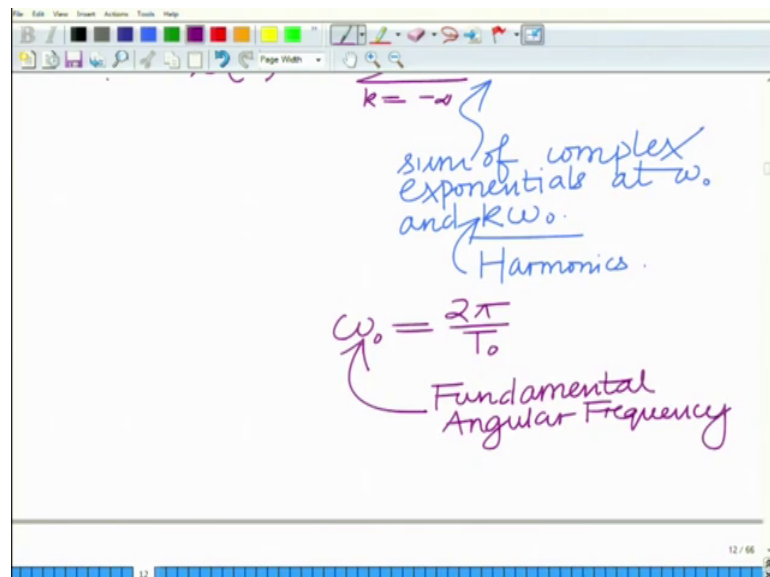 File Edit View Insert Actions Tools Help
B I
Page Width
k = -∞
sum of complex
exponentials at ω₀
and kω₀.
Harmonics.
ω₀ = 2π/T₀
Fundamental
Angular Frequency
12 / 66
12